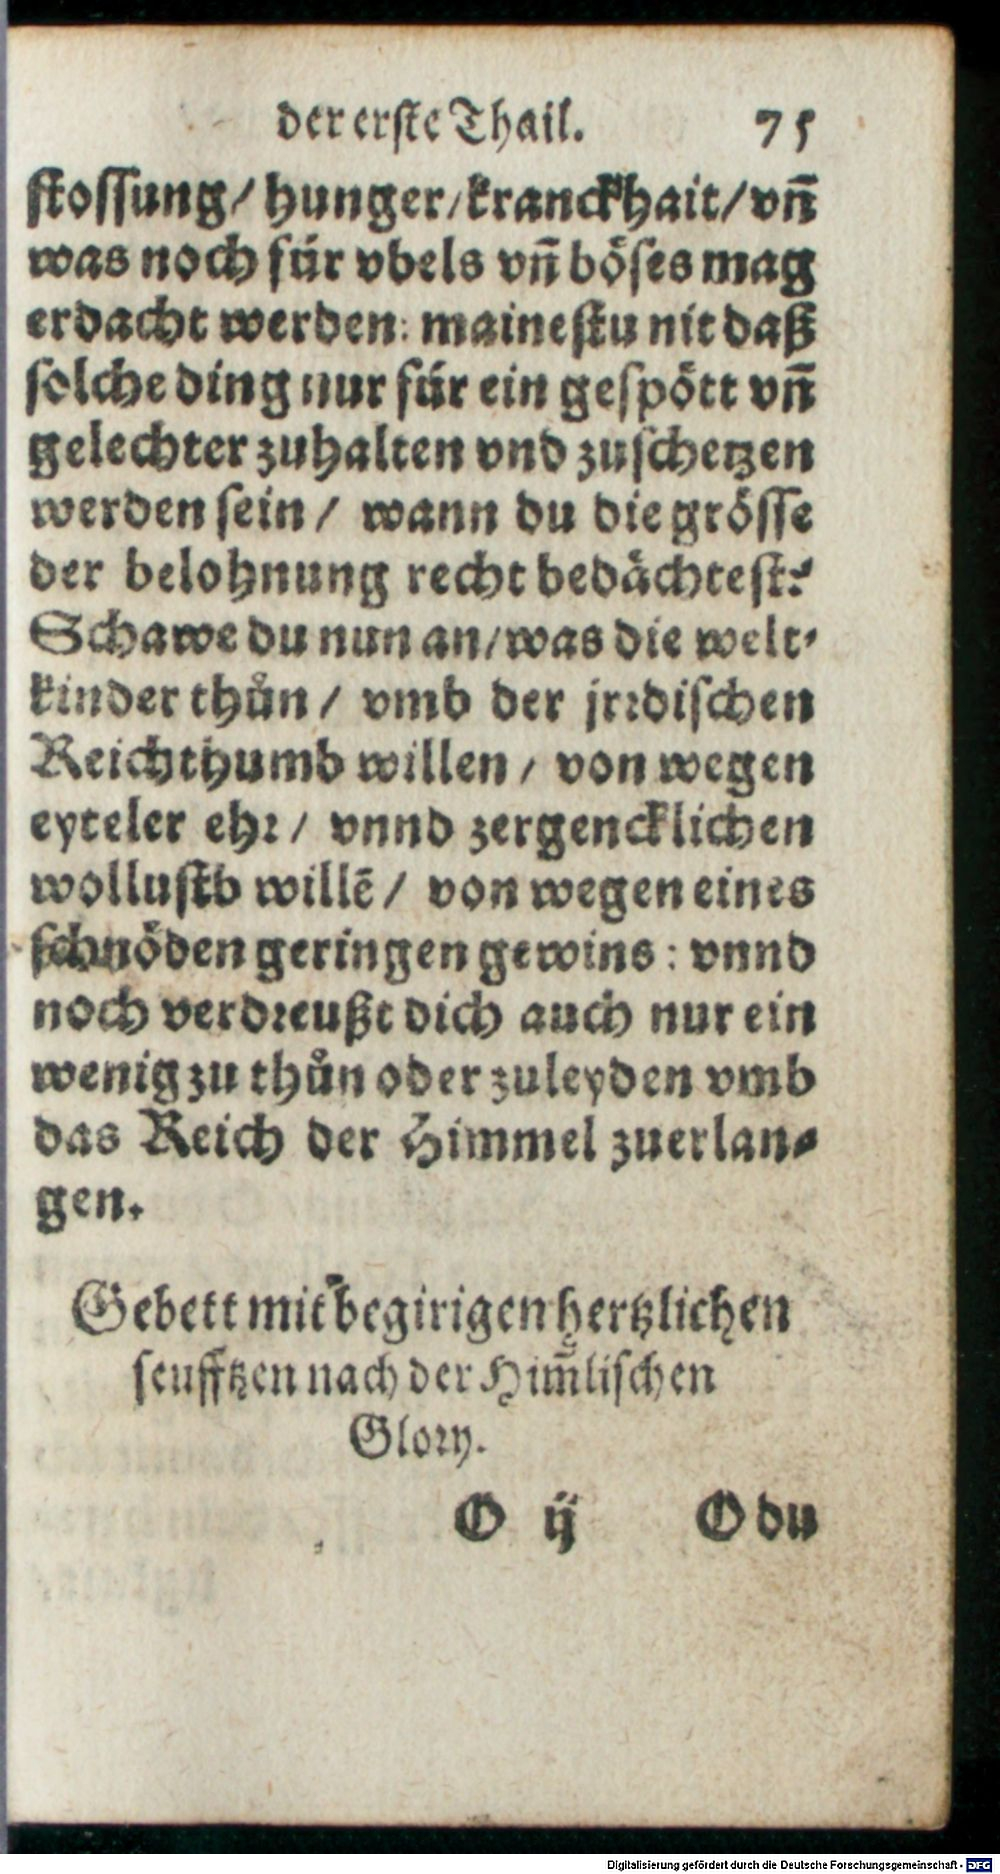 der erste Thail. 75
stossung/ hunger/ kranckhait/ vn̄
was noch für vbels vn̄ böses mag
erdacht werden: mainestu nit daß
solche ding nur für ein gespött vn̄
gelechter zuhalten vnd zuschetzen
werden sein/ wann du die grösse
der belohnung recht bedächtest?
Schawe du nun an/ was die welt-
kinder thůn/ vmb der jrꝛdischen
Reichthumb willen/ von wegen
eyteler ehꝛ/ vnnd zergencklichen
wollustb willē/ von wegen eines
schnöden geringen gewins: vnnd
noch verdꝛeußt dich auch nur ein
wenig zu thůn oder zuleyden vmb
das Reich der Himmel zuerlan-
gen.
Gebett mit begirigen hertzlichen
seufftzen nach der Him̄lischen
Gloꝛy.
O ij O du
Digitalisierung gefördert durch die Deutsche Forschungsgemeinschaft - DFG